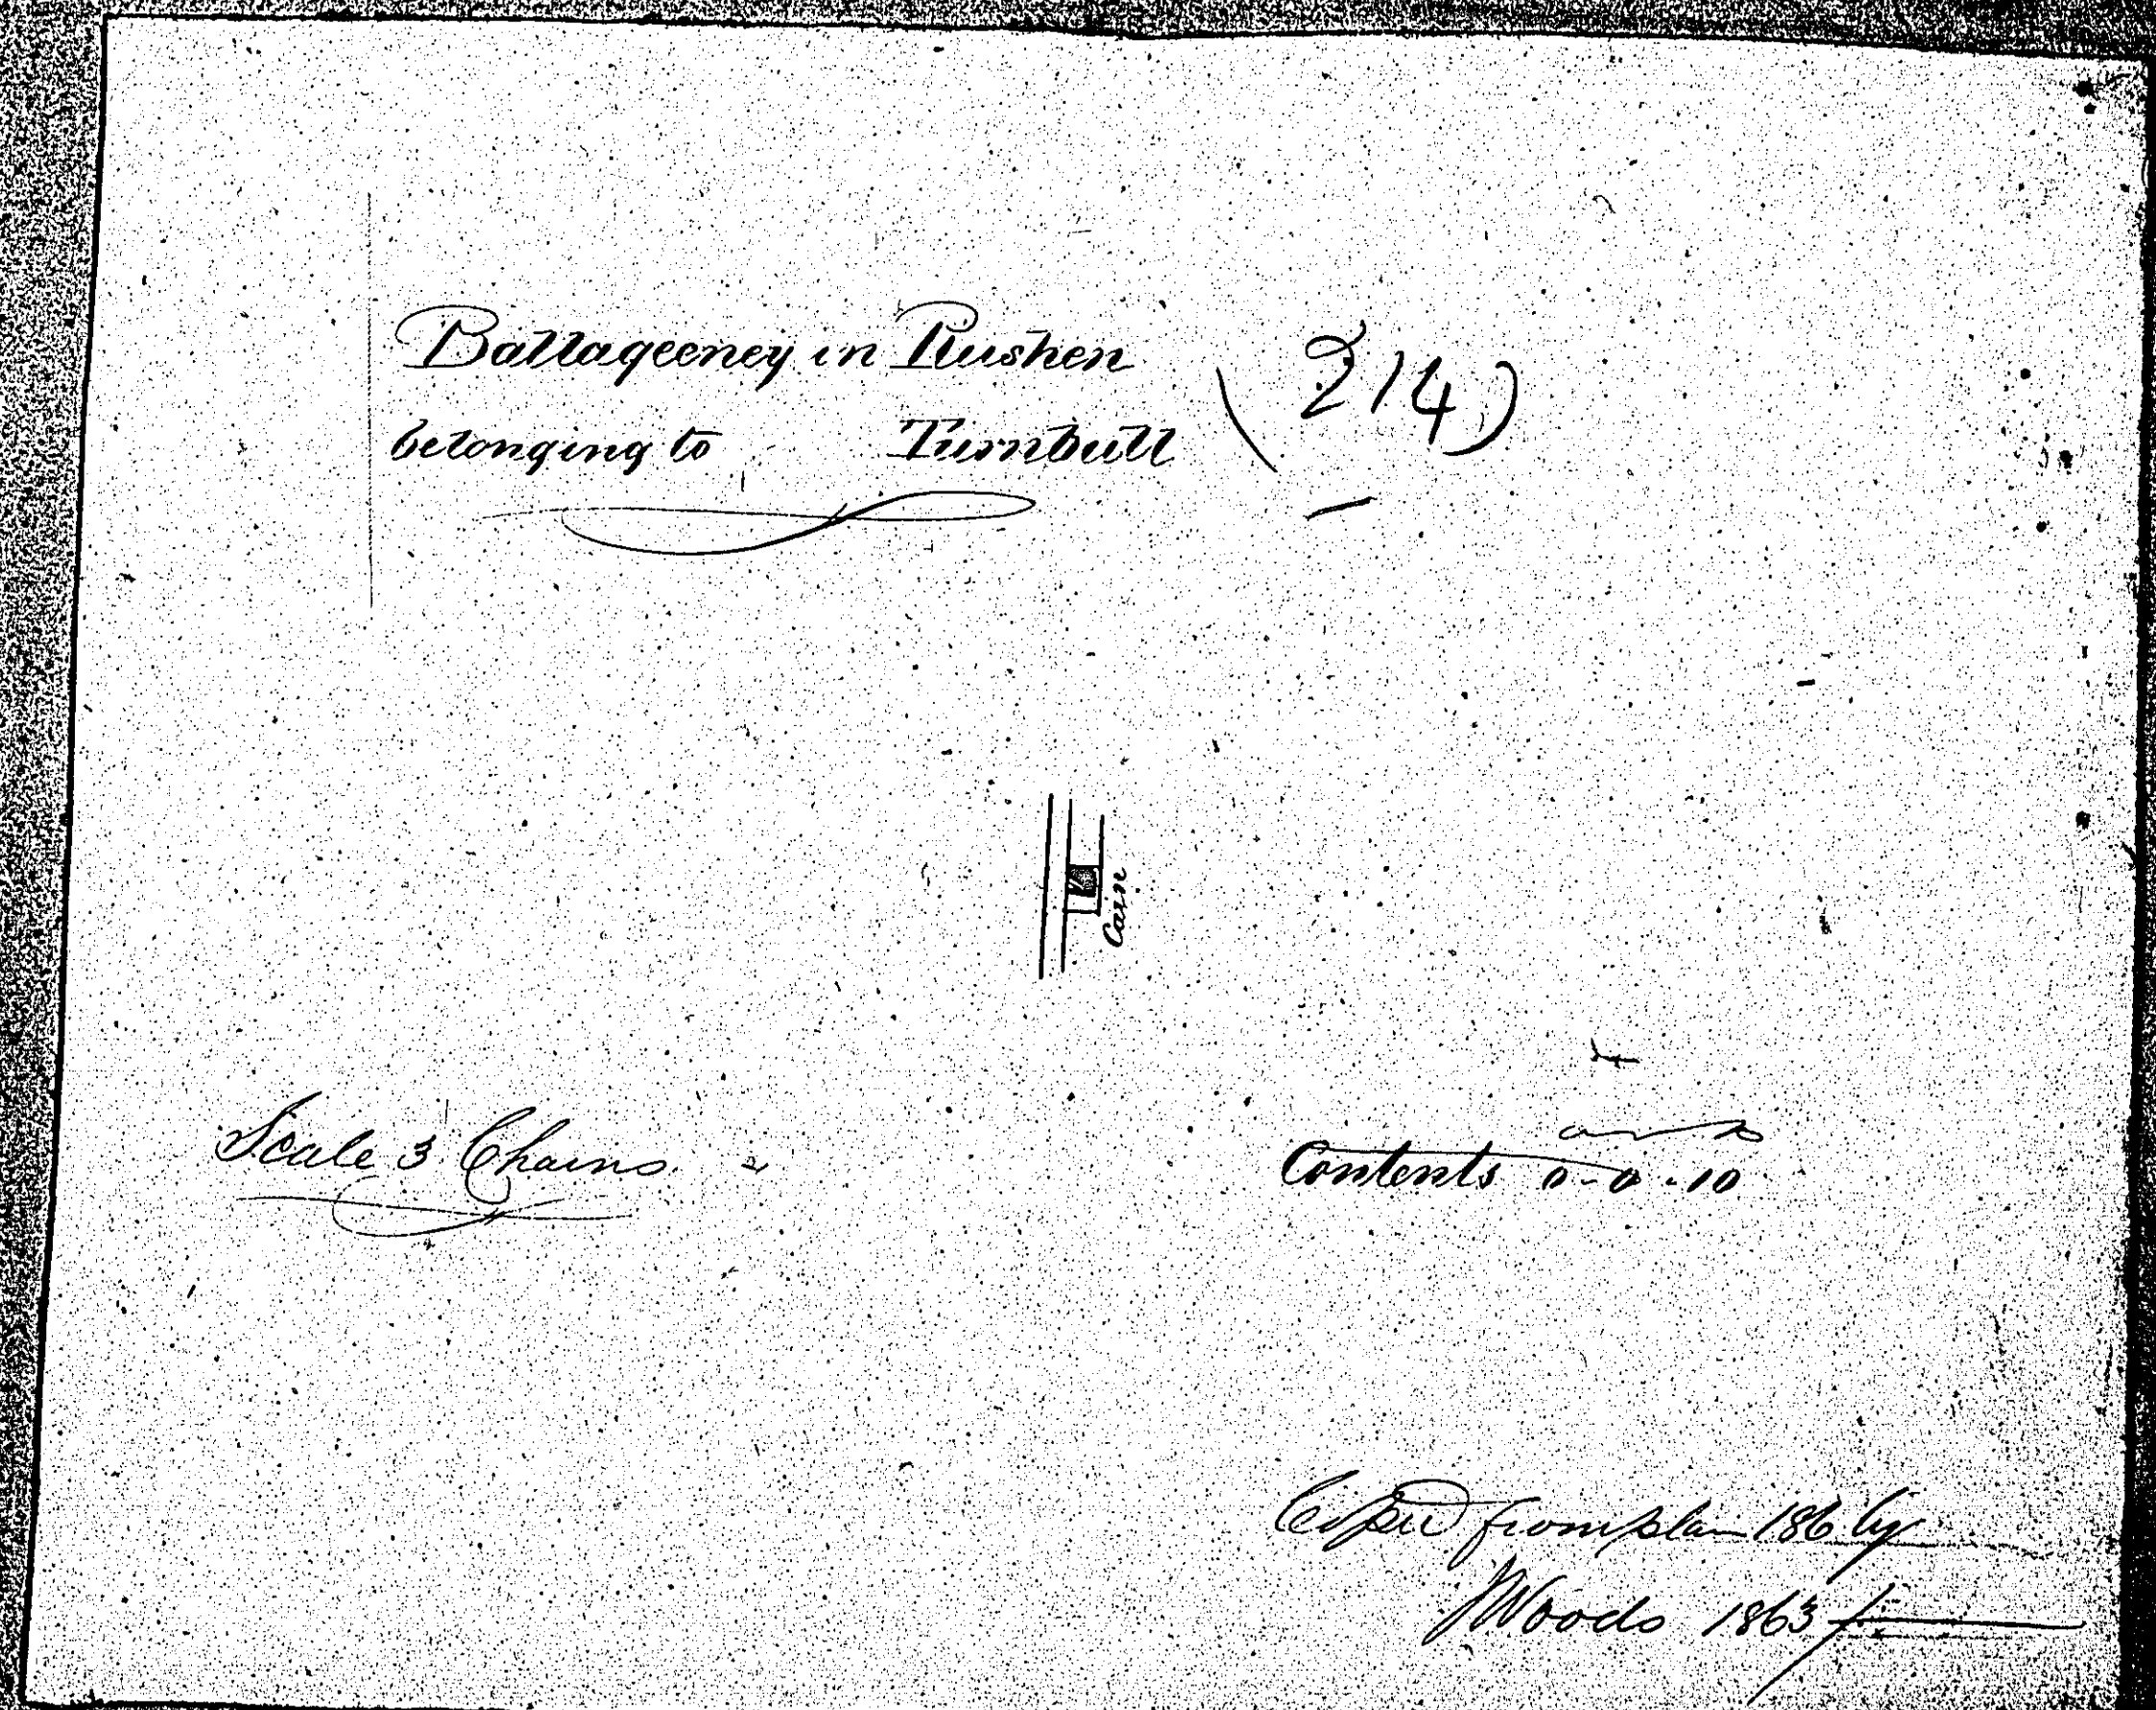 Ballageeney in Rushen
belonging to Turnbull
(214)
Cain
Scale 3 Chains
Contents 0-0-10
Copied from plan 186 by
JWoods 1863